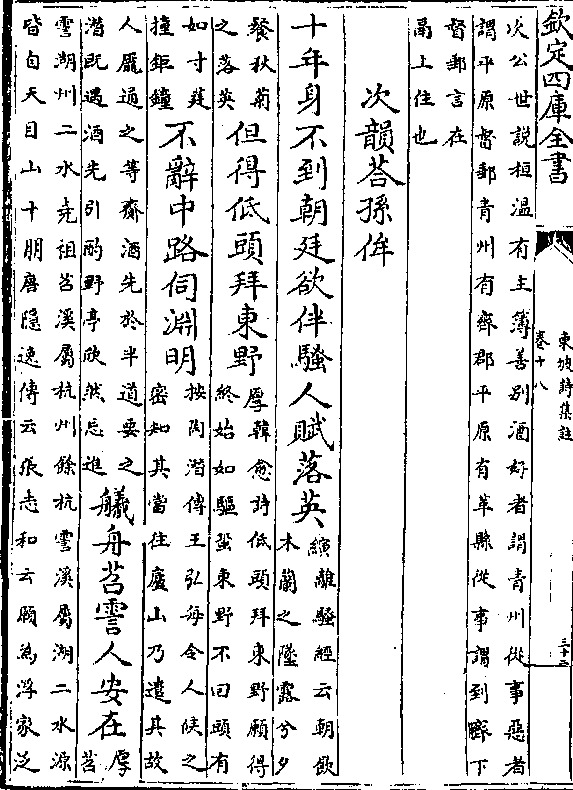 欽定四庫全書
東坡詩集註
卷十八
三十二
次公世說桓溫有主簿善别酒好者謂青州從事惡者
謂平原督郵青州有齊郡平原有革縣從事謂到臍下
督郵言在
鬲上住也
次韻荅孫侔
十年身不到朝廷欲伴騷人賦落英
縯離騷經云朝飲
木蘭之墜露兮夕
餐秋菊
之落英
但得低頭拜東野
厚韓愈詩低頭拜東野願得
終始如駏蛩東野不囘頭有
如寸莛
撞鉅鐘
不辭中路伺淵明
按陶潛傳王弘每令人候之
密知其當往廬山乃遣其故
人龎通之等齎酒先於半道要之
潛既遇酒先引酌野亭欣然忘進
艤舟苕霅人安在
厚
苕
霅湖州二水堯祖苕溪屬杭州餘杭霅溪屬湖二水源
皆自天目山十朋唐隱逸傳云張志和云願為浮家泛